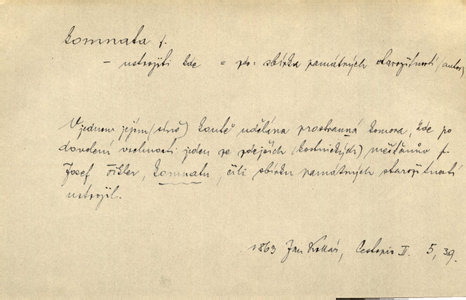 komnata f.
– ustrojiti kde = po. sbírka památných starožitností (autor)
V jednom jejím (síně) koutě udělána prostranná komora, kde po
dovolení vrchnosti jeden ze zdejších (kostnických) měšťanův p.
Josef Tikler, komnatu, čili sbírku památných starožitností
ustrojil.
1863 Jan Kollár, Cestopis II. 5, 39.